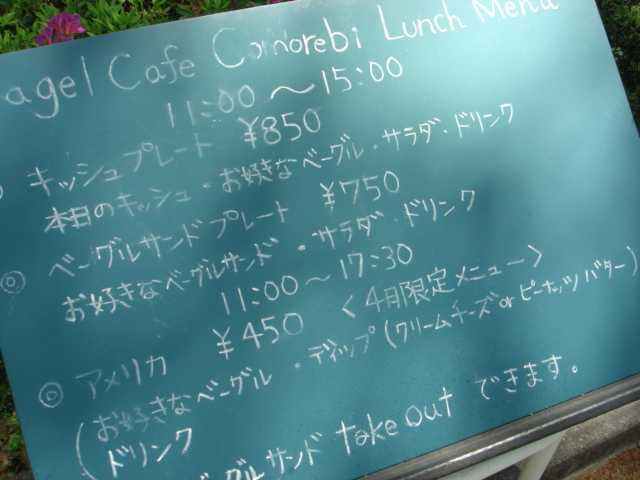 agel Cafe Comorebi Lunch Menu
11:00～15:00
キッシュプレート ¥850
本日のキッシュ・お好きなベーグル・サラダ・ドリンク
◎ ベーグルサンドプレート ¥750
お好きなベーグルサンド・サラダ・ドリンク
11:00～17:30
◎ アメリカ ¥450 <4月限定メニュー>
(お好きなベーグル・ディップ(クリームチーズorピーナッツバター)
ドリンク
ベーグルサンド take out できます。